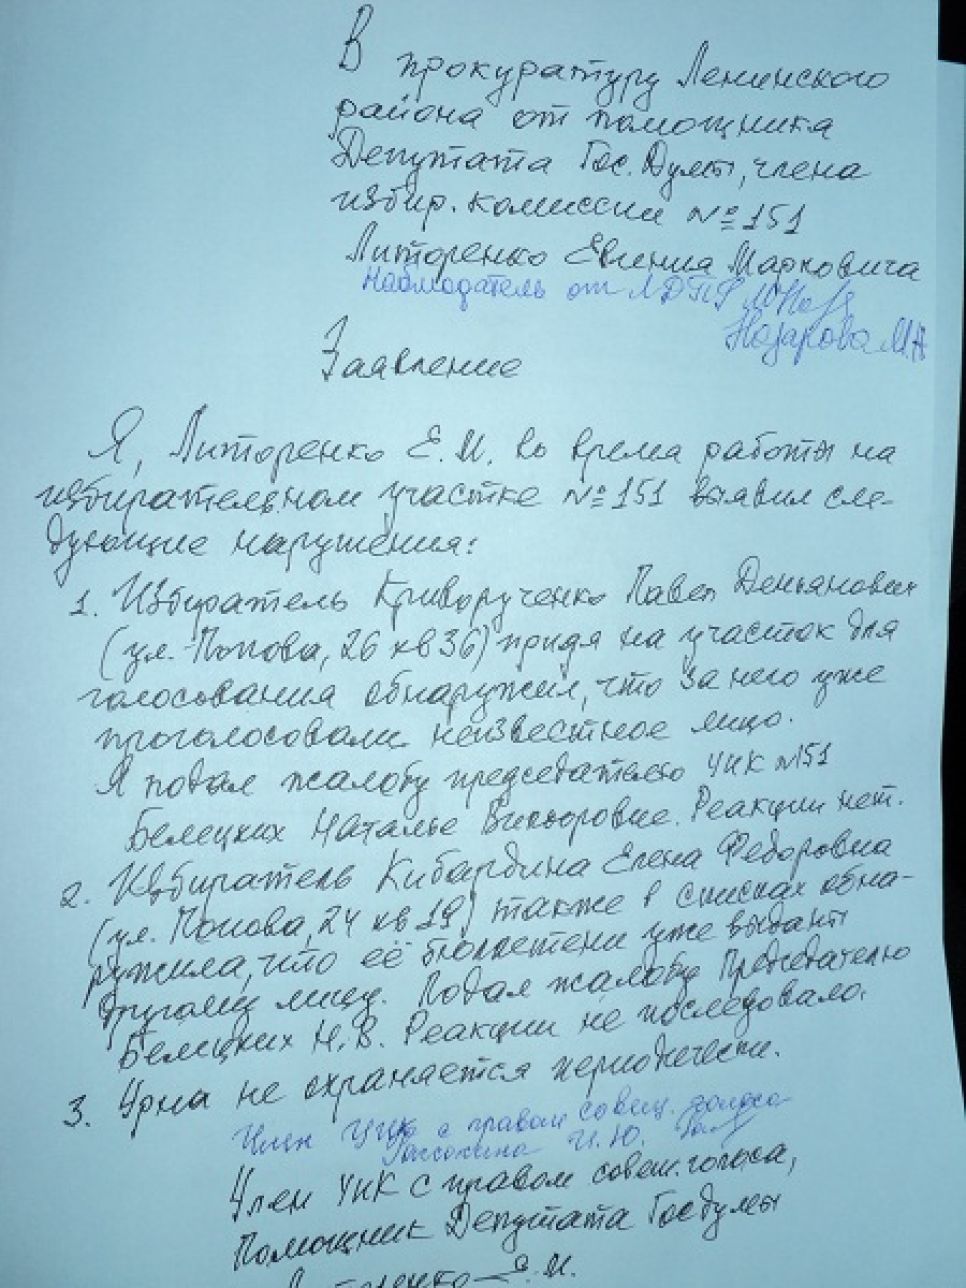 В прокуратуру Ленинского
района от помощника
Депутата Гос. Думы, члена
избир. комиссии №151
Литоренко Евгения Марковича
Наблюдатель от ЛДПР
Назарова М.А
Заявление
Я, Литоренко Е.М. во время работы на
избирательном участке №151 выявил сле-
дующие нарушения:
1. Избиратель Криворученко Павел Демьянович
(ул. Попова, 26 кв 36) придя на участок для
голосования обнаружил, что за него уже
проголосовали неизвестное лицо.
Я подал жалобу председателю УИК №151
Белецких Наталье Викторовне. Реакции нет.
2. Избиратель Кибардина Елена Федоровна
(ул. Попова, 24 кв 19) также в списках обна-
ружила, что её бюллетени уже выданы
другому лицу. Подал жалобу Председателю
Белецких Н.В. Реакции не последовало.
3. Урна не охраняется периодически.
Член УИК с правом совещ. голоса
И.Ю.
Член УИК с правом совещ. голоса,
Помощник Депутата Госдумы
Литоренко Е.М.